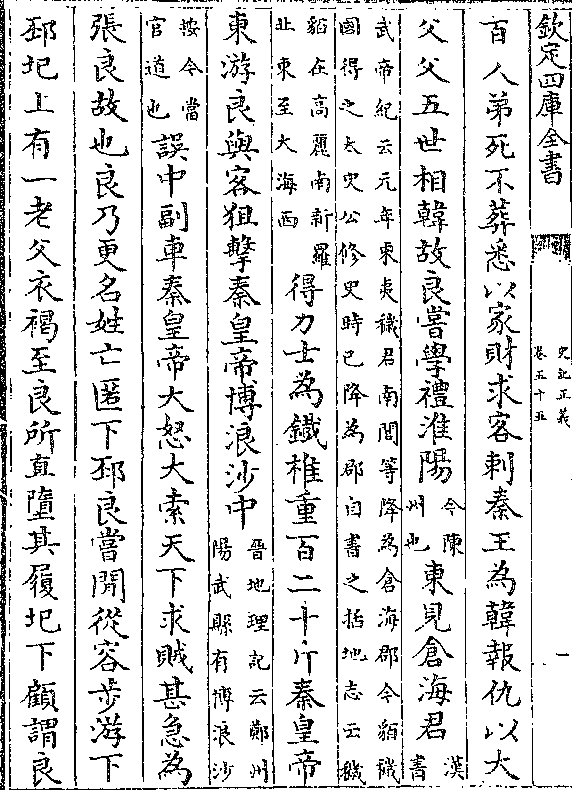 欽定四庫全書
史記正義
卷五十五
一
百人弟死不葬悉以家財求客刺秦王為韓報仇以大
父父五世相韓故良嘗學禮淮陽今陳州也東見倉海君漢書
武帝紀云元年東夷穢君南閭等降為倉海郡今貊穢
國得之太史公修史時已降為郡自書之括地志云穢
貊在高麗南新羅北東至大海西得力士為鐵椎重百二十斤秦皇帝
東游良與客狙擊秦皇帝博浪沙中晉地理記云鄭州陽武縣有博浪沙
按今當官道也誤中副車秦皇帝大怒大索天下求賊甚急為
張良故也良乃更名姓亡匿下邳良嘗閒從容步游下
邳圯上有一老父衣褐至良所直墮其履圯下顧謂良